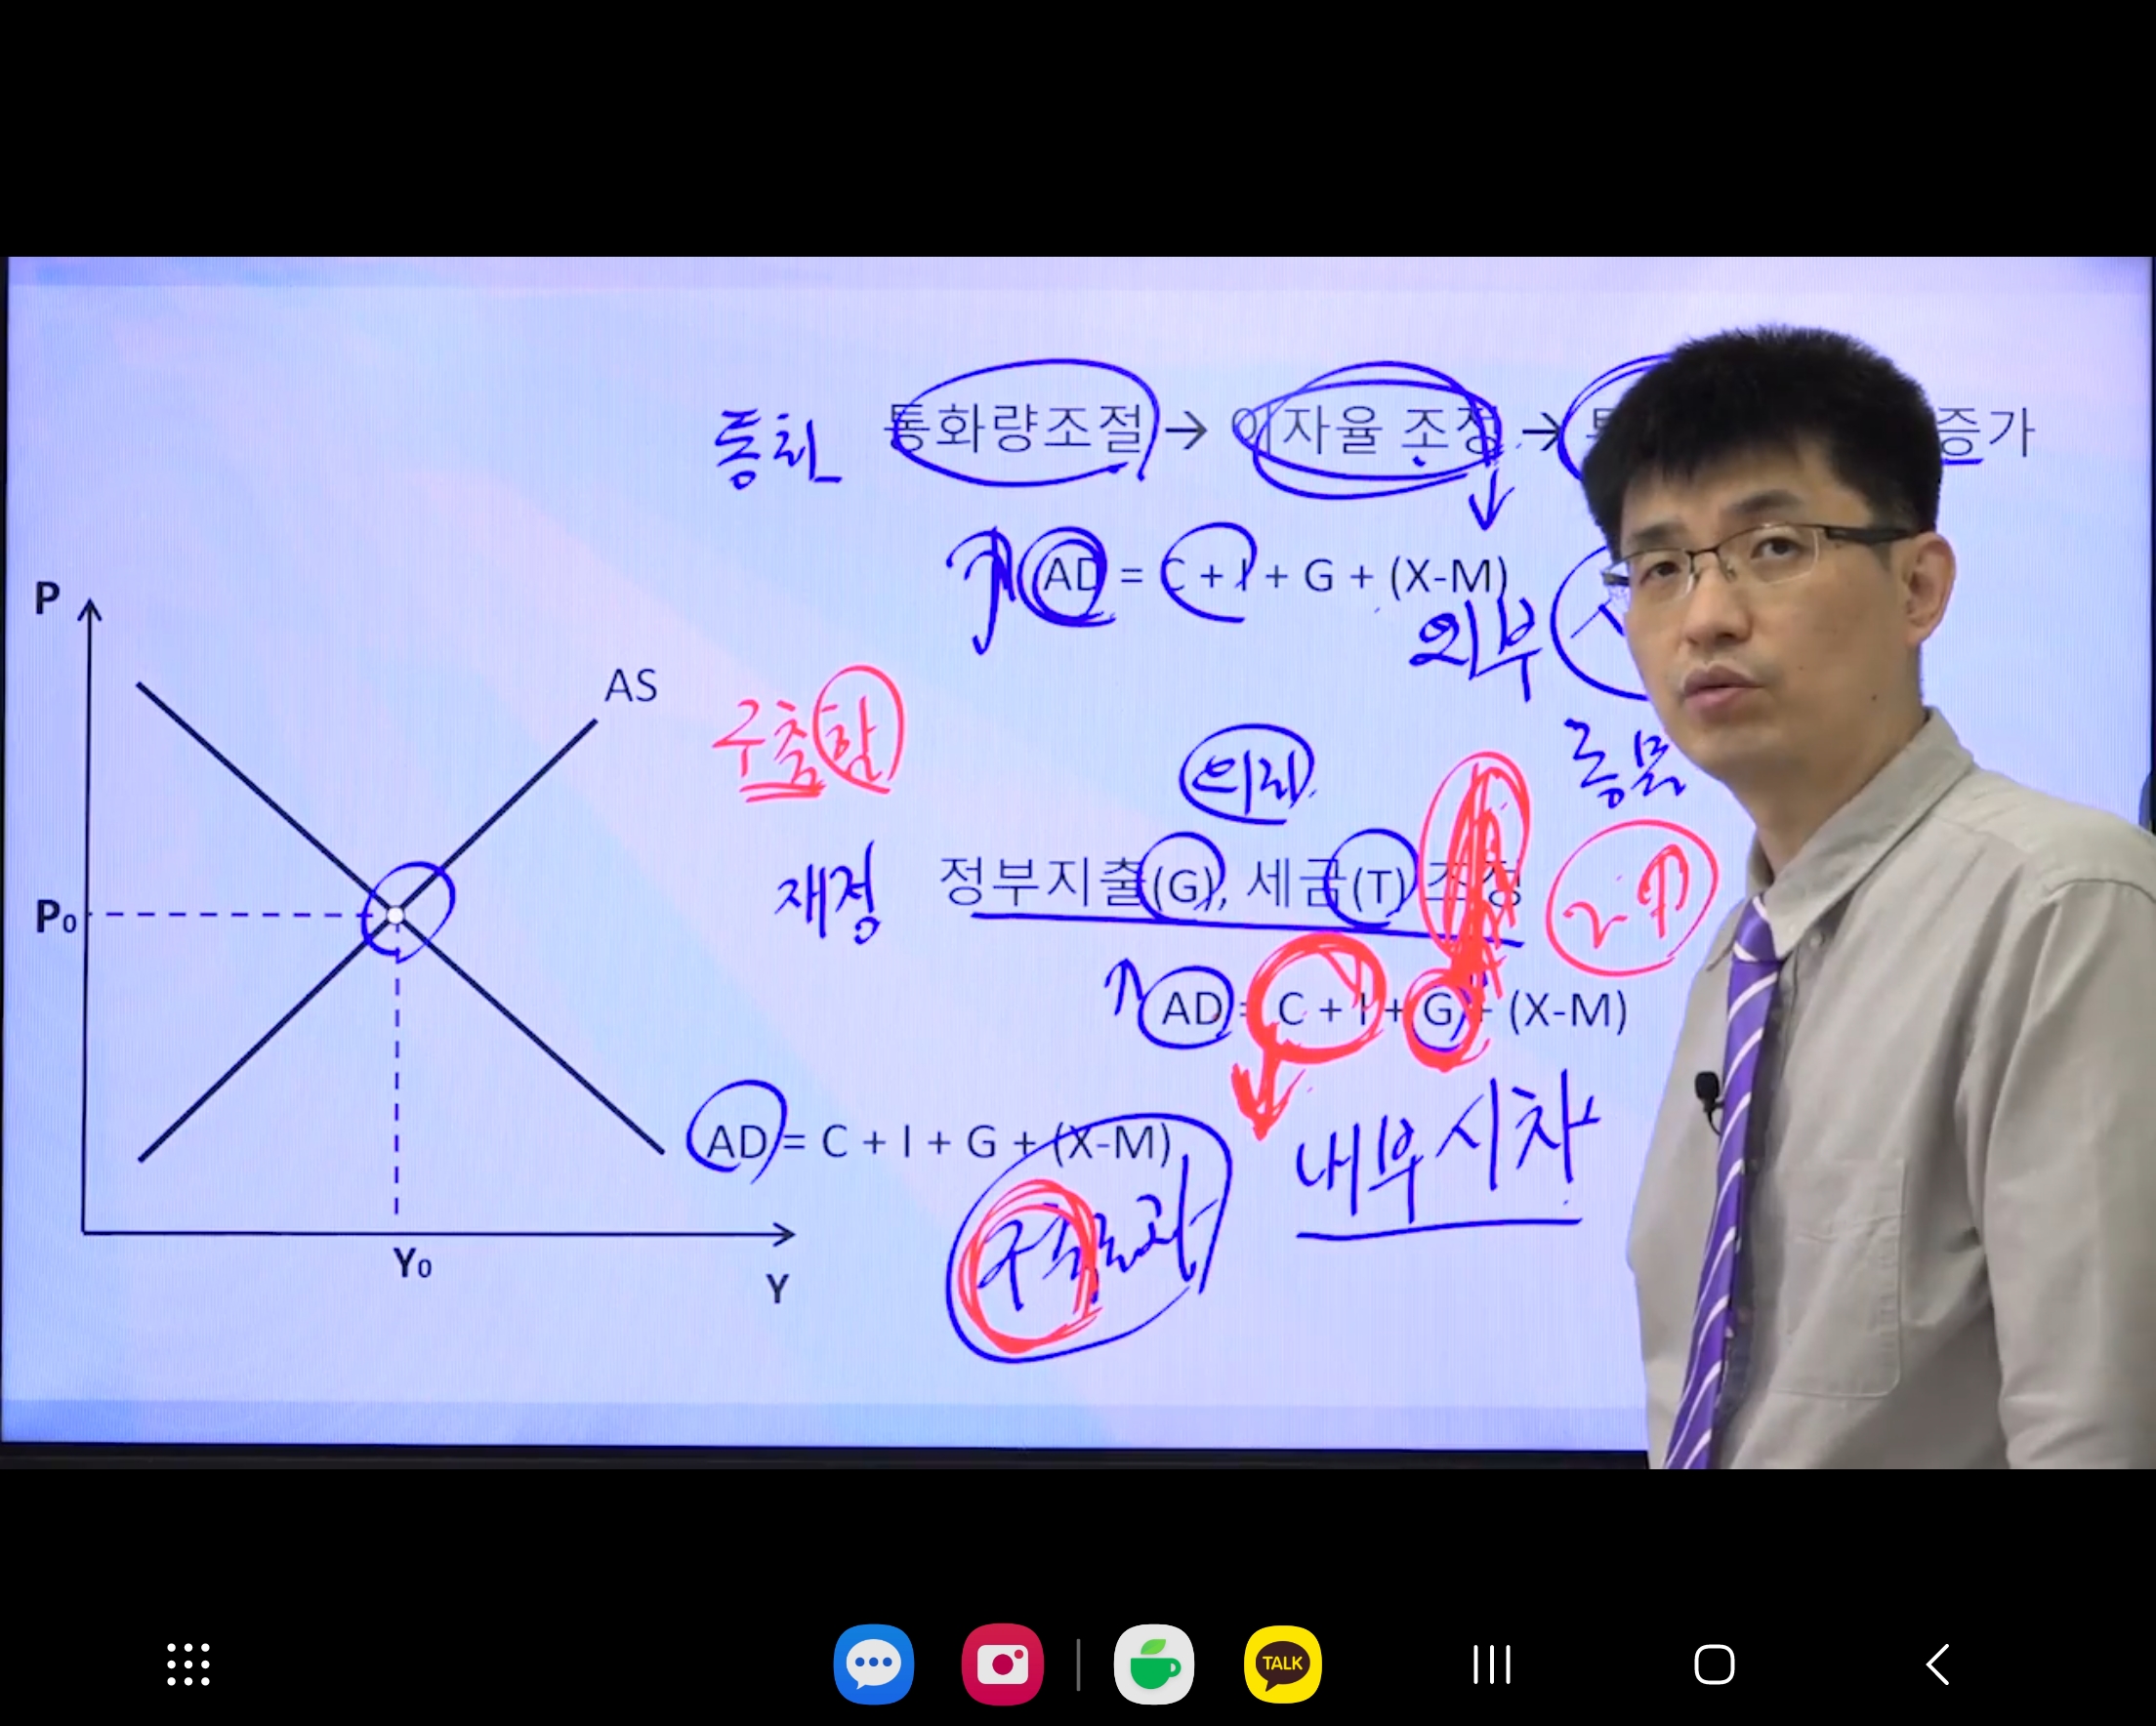 통화 통화량조절 → 이자율 조정 → 증가
AD = C + I + G + (X-M)
외부
P
AS
구축함
의회
동물
재정 정부지출(G), 세금(T) 조정
P0
AD = C + I + G + (X-M)
AD = C + I + G + (X-M)
내부시차
구축효과
Y0
Y
TALK